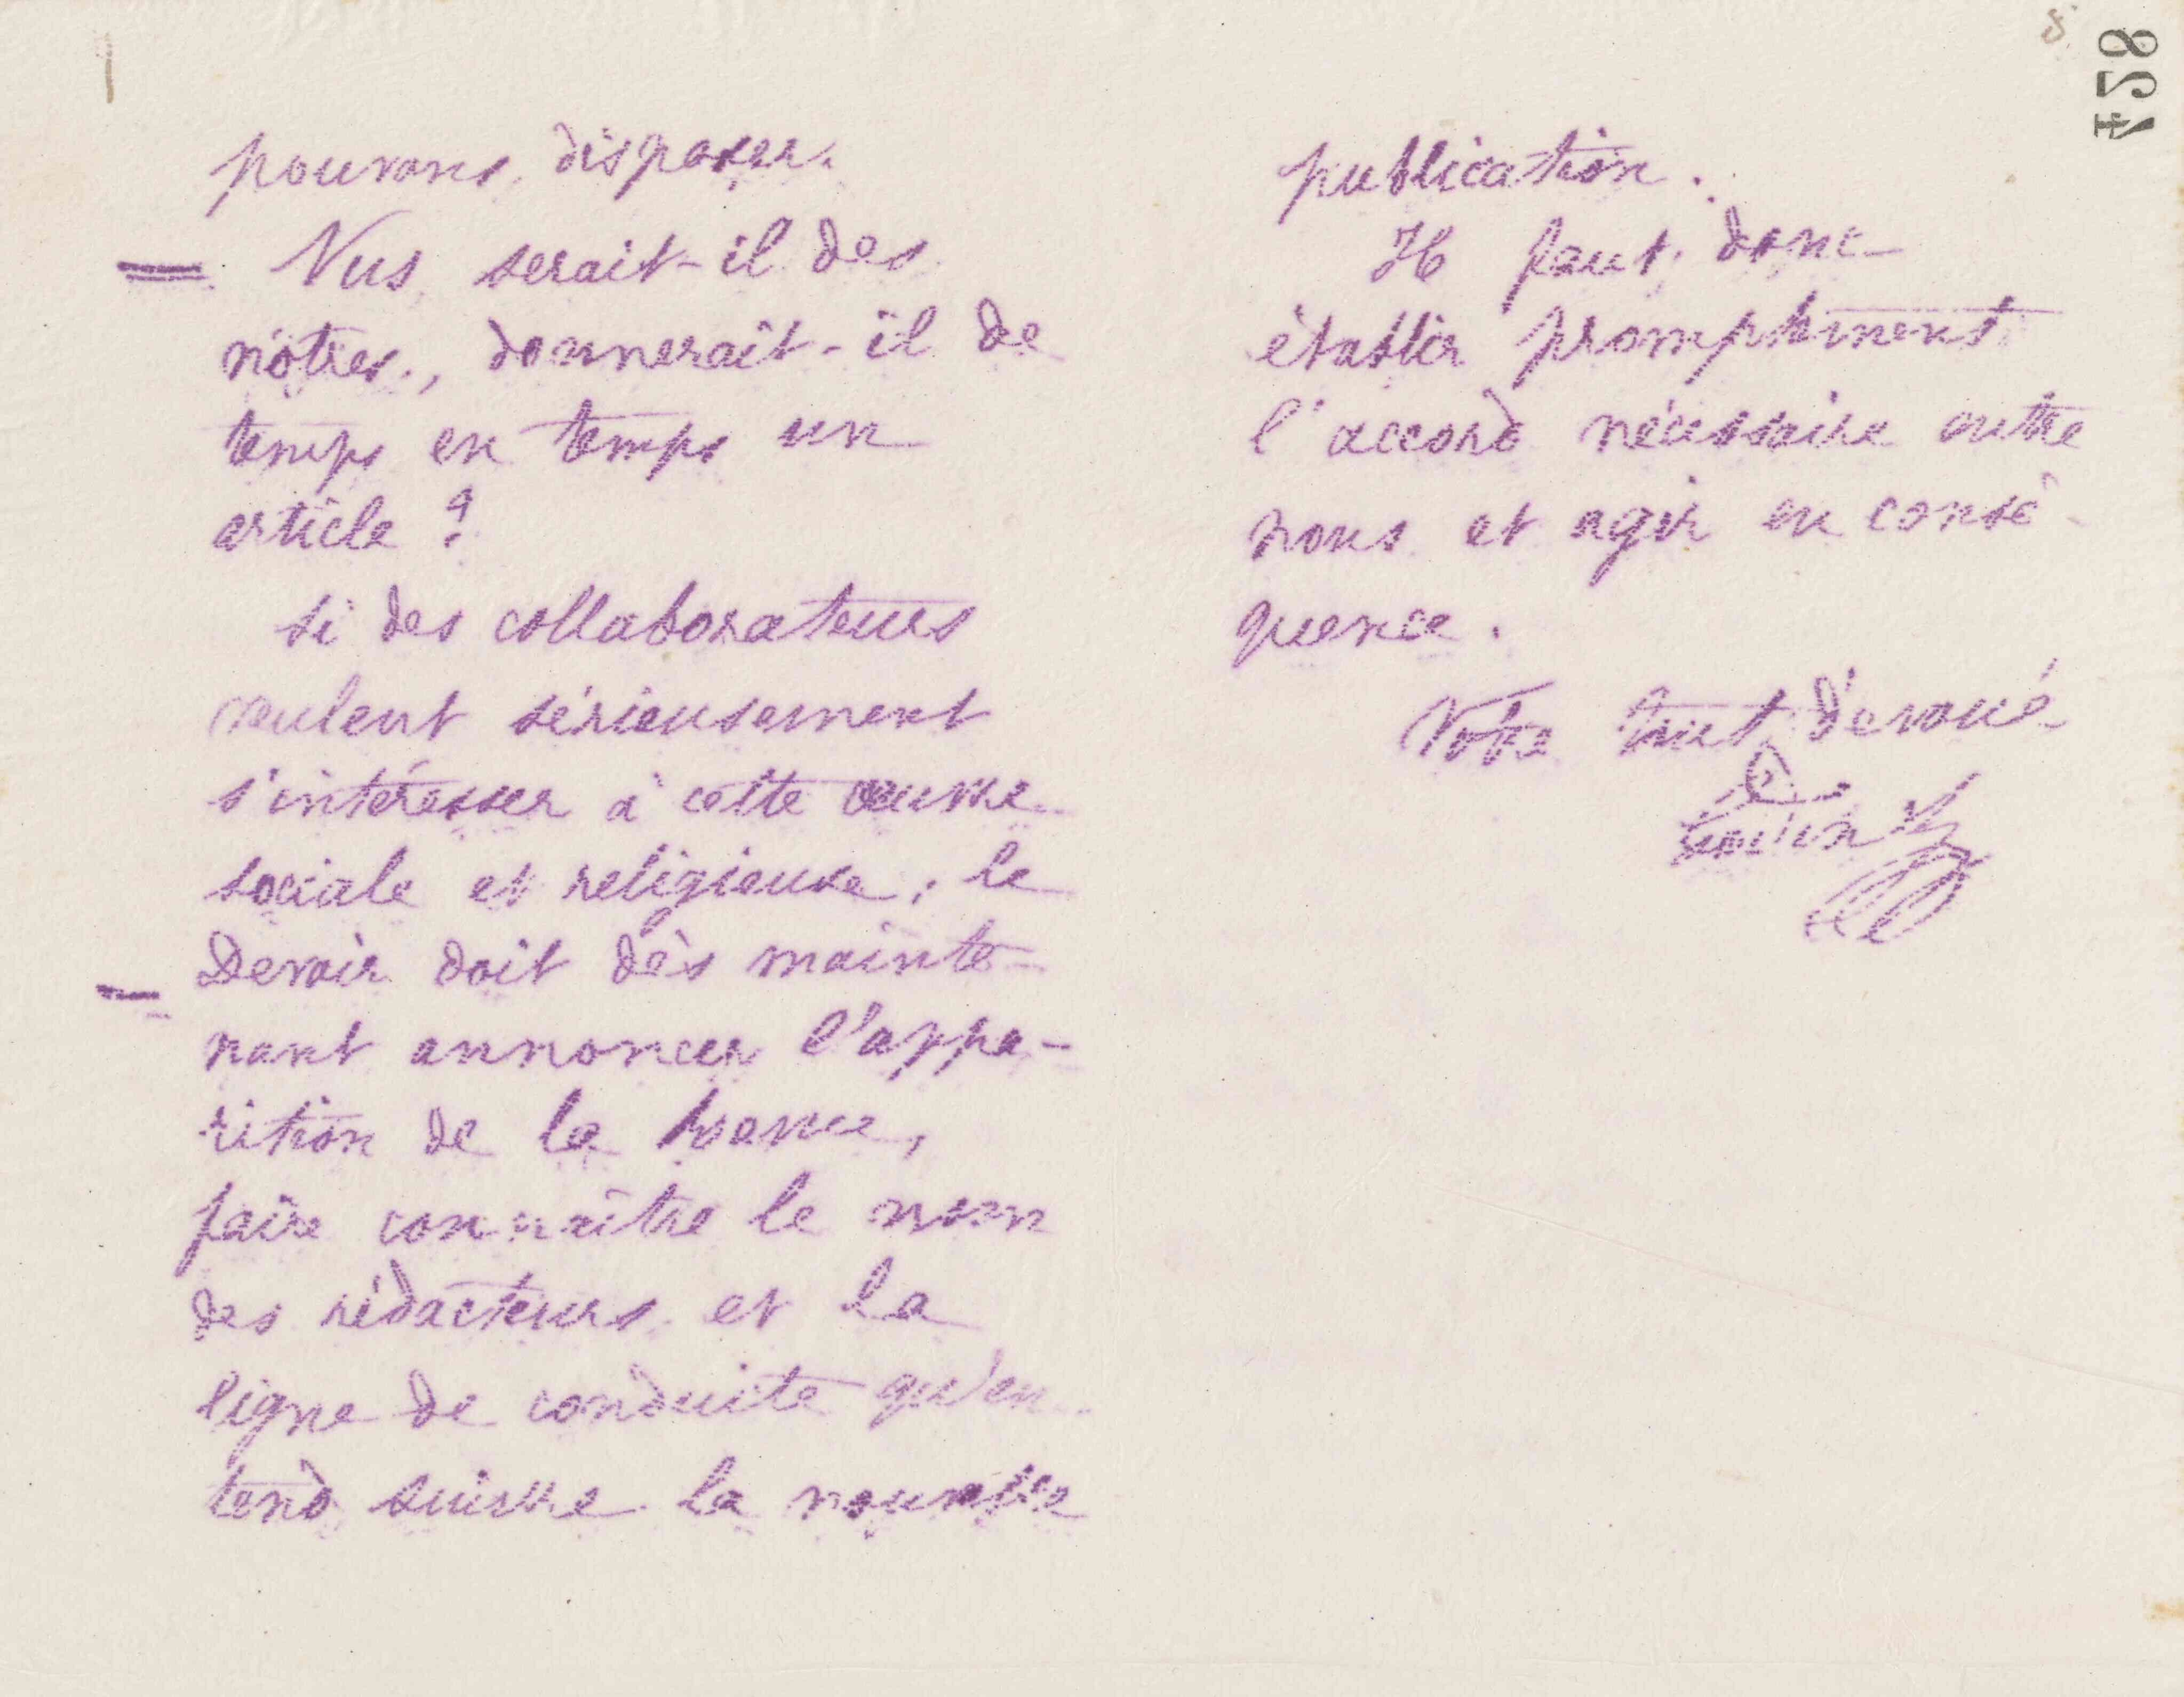 pouvons disposer.
Nus serait-il des
nôtres, donnerait-il de
temps en temps un
article ?
Si des collaborateurs
veulent sérieusement
s'intéresser à cette œuvre
sociale et religieuse, le
Devoir doit dès mainte-
nant annoncer l'appa-
rition de la
faire connaître le nom
des rédacteurs et la
ligne de conduite qu'en-
tend suivre la nouvelle
8
publication.
Il faut donc
établir promptement
l'accord nécessaire entre
nous et agir en consé-
quence.
Votre tout dévoué
Godin